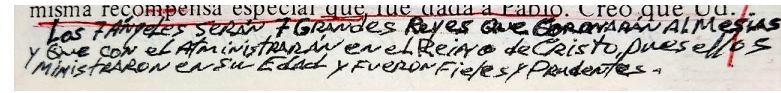 misma recompensa especial que, fue dada a Pablo. Creo que Ud.
Los 7 Ángeles serán 7 Grandes Reyes que coronarán al Mesías
y que con el Administrarán en el Reino de Cristo, pues ellos
Ministraron en su Edad y fueron Fieles y Prudentes.